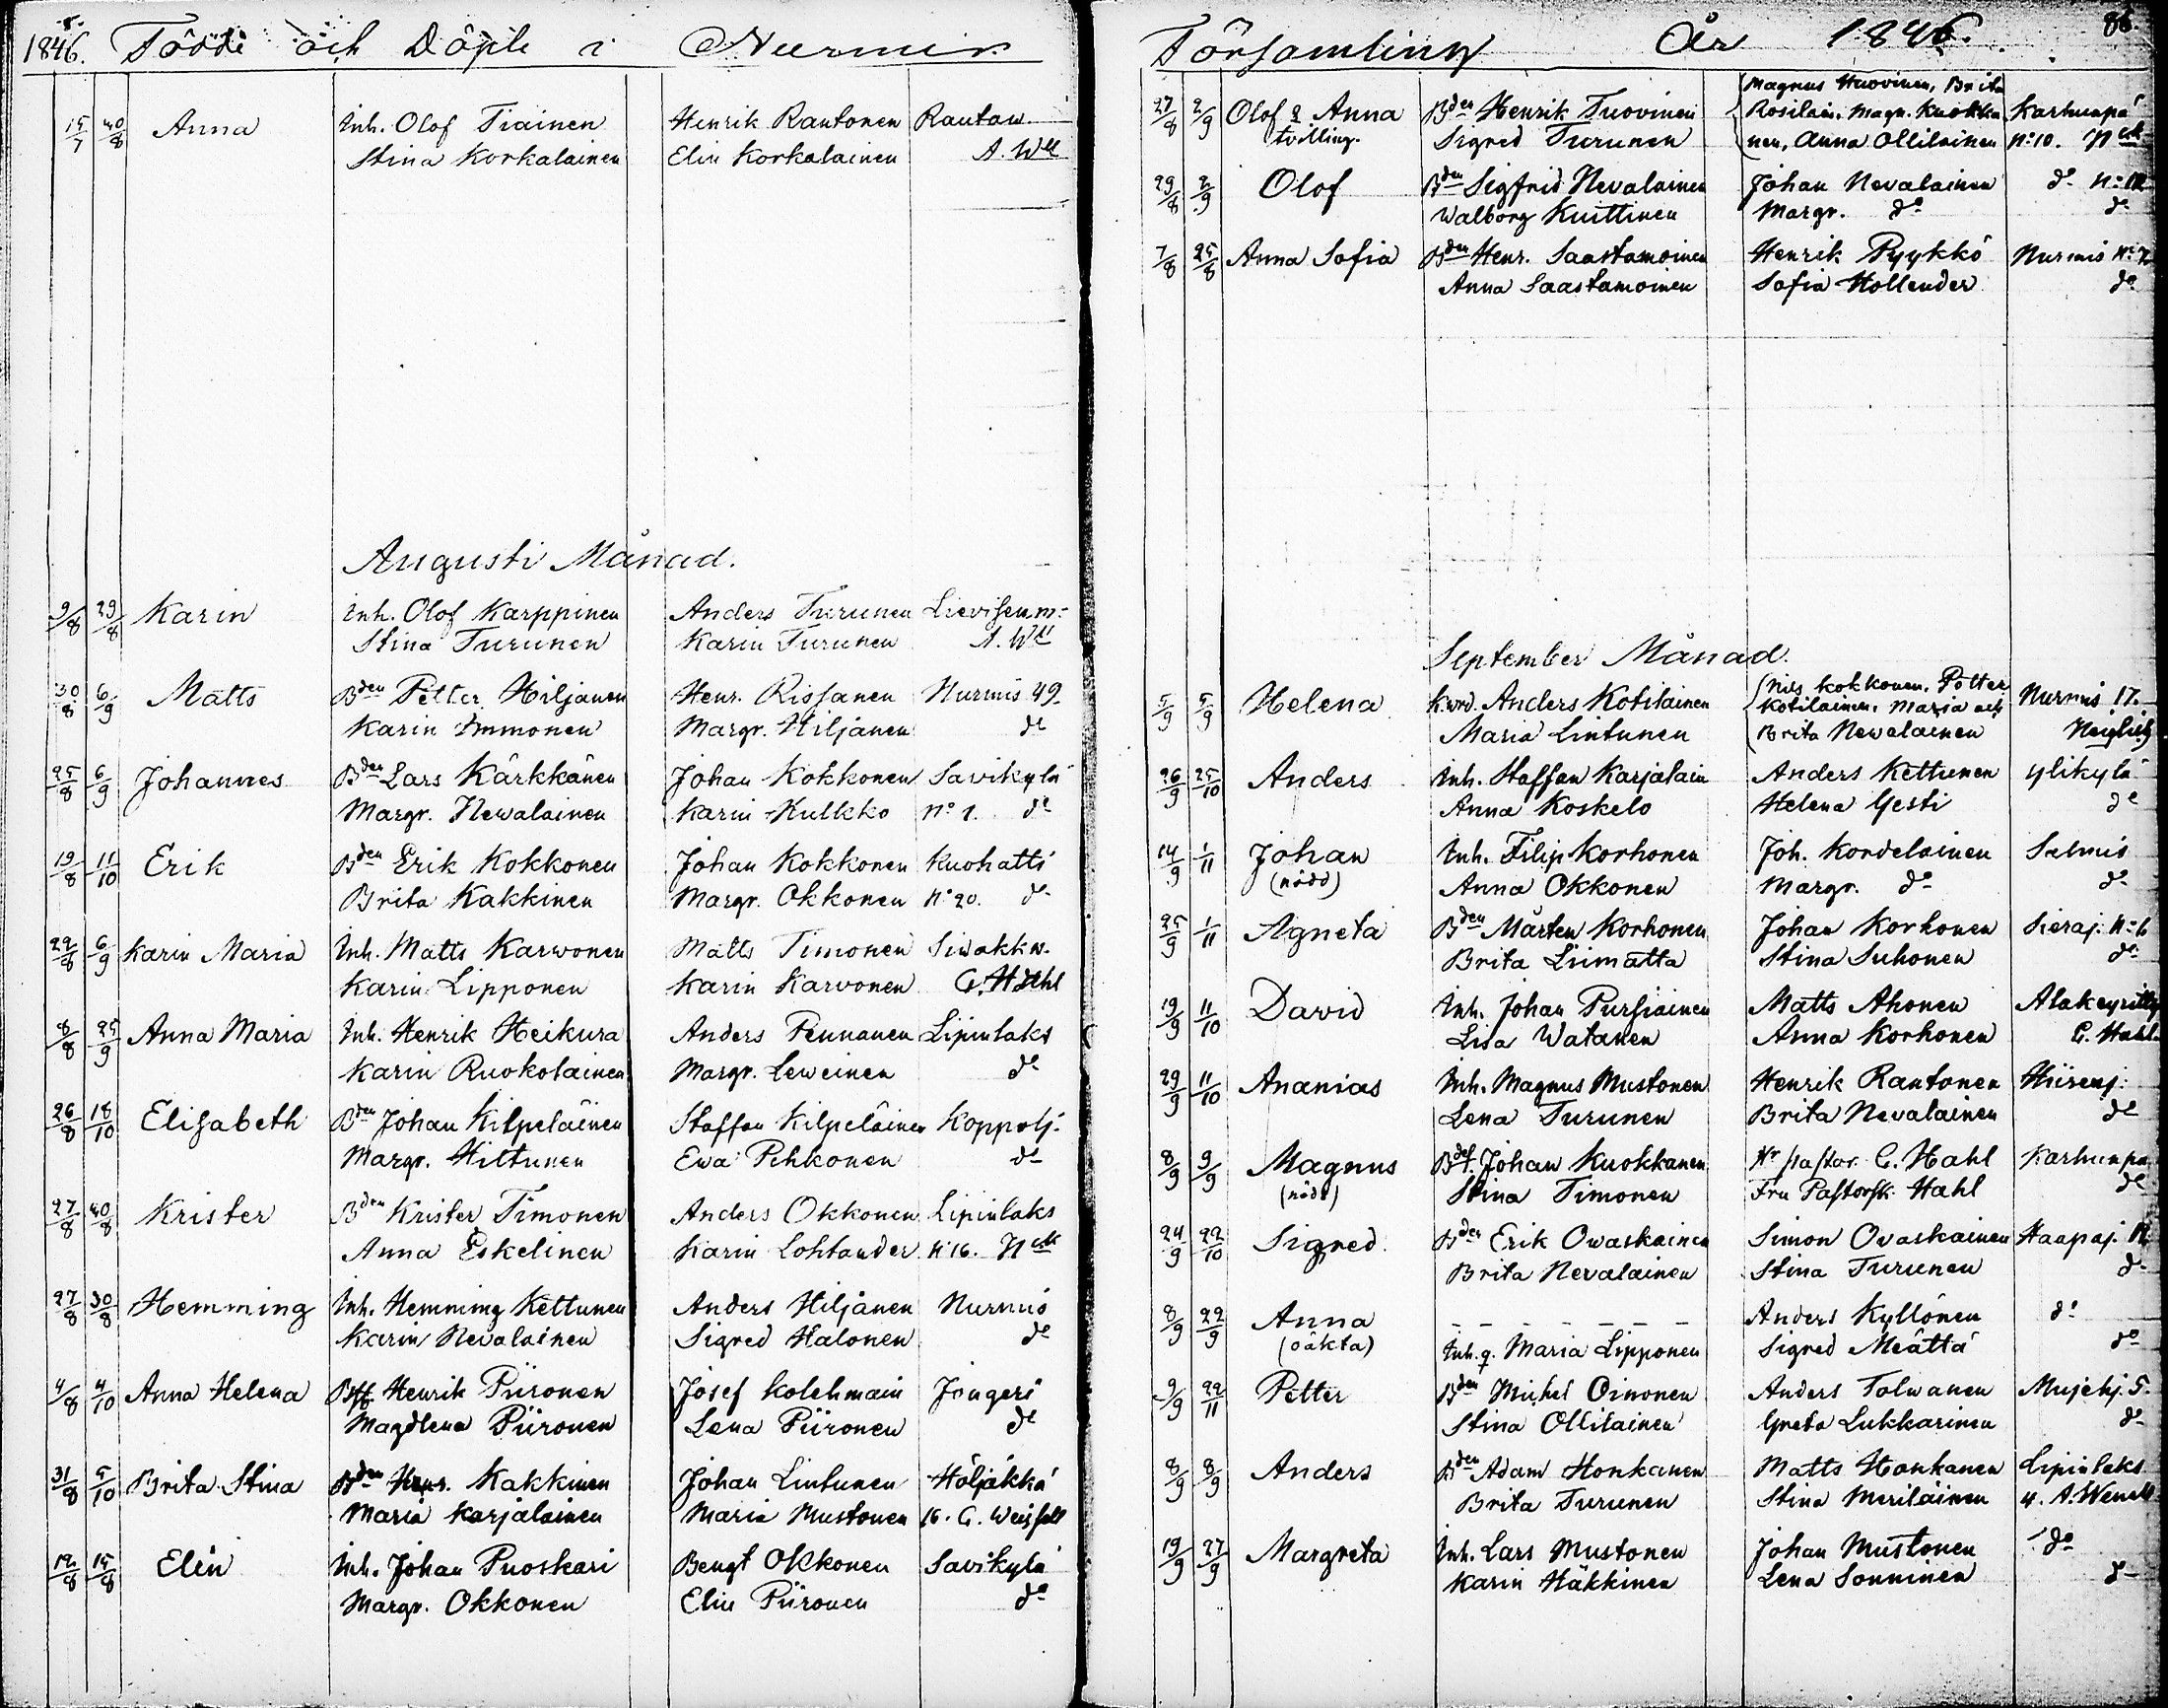 1846. Födde och Döpte i Nurmis
15/7 30/8 Anna Inh. Olof Tiainen Henrik Rautonen Rautaw.
Stina Korkalainen Elin Korkalainen A. Wll
Augusti Månad.
9/8 29/8 Karin Inh. Olof Karppinen Anders Turunen Lievisen m:
Stina Turunen Karin Turunen A. Wll
30/8 6/9 Matts Bden Petter Hiljanen Henr. Rissanen Nurmis 49.
Karin Immonen Margr. Hiljanen do
25/8 6/9 Johannes Bden Lars Kärkkänen Johan Kokkonen Savikylä
Margr. Newalainen Karin Kulkko No 1. do
19/8 11/10 Erik Bden Erik Kokkonen Johan Kokkonen Kuohatti
Brita Kakkinen Margr. Okkonen No 20. do
22/8 6/9 Karin Maria Inh. Matts Karwonen Matts Timonen Siwakkw.
Karin Lipponen Karin Karvonen C. Hahl
8/8 25/9 Anna Maria Inh. Henrik Heikura Anders Pennanen Lipinlaks
Karin Ruokolainen Margr. Leweinen do
26/8 18/10 Elisabeth Bden Johan Kilpeläinen Staffan Kilpeläinen Koppolj.
Margr. Hiltunen Ewa Pehkonen do
27/8 30/8 Krister Bden Krister Timonen Anders Okkonen Lipinlaks
Anna Eskelinen Karin Lohlander N:16. Nck
27/8 30/8 Hemming Inh. Hemming Kettunen Anders Hiljanen Nurmis
Karin Nevalainen Sigred Halonen do
4/8 4/10 Anna Helena Henrik Piironen Josef Kolehmain Jongeri
Magdlena Piironen Lena Piironen do
31/8 5/10 Brita Stina Bden Henr. Kakkinen Johan Lintunen Höljäkkä
Maria Karjalainen Maria Mustonen 16. C. Weisfell
12/8 15/8 Elin Inh. Johan Puoskari Bengt Okkonen Savikylä
Margr. Okkonen Elin Piironen do
Församling År 1846. 86.
Magnus Huovinen, Brita
27/8 2/9 Olof & Anna Bden Henrik Tuovinen Rosilain. Magn. Kuokka Karhunpä
tvilling. Sigred Turunen nen, Anna Ollilainen No:10. Nck
29/8 2/9 Olof Bden Sigfrid Nevalainen Johan Nevalainen do N:12
Walborg Kuittinen Margr. do do
7/8 25/8 Anna Sofia Bden Henr. Saastamoinen Henrik Pyykkö Nurmis N:7
Anna Saastamoinen Sofia Hollender do
September Månad.
5/9 5/9 Helena K.wrd. Anders Kotilainen Nils Kokkonen, Petter Nurmis 17.
Kotilainen, Maria och
Maria Lintunen Brita Newalainen Neiglick
26/9 25/10 Anders Inh. Staffan Karjalain Anders Kettunen Ylikylä
Anna Koskelo Helena Gesti do
14/9 1/11 Johan Inh. Filip Korhonen Joh. Kordelainen Salmis
(nödd) Anna Okkonen Margr. do do
25/9 1/11 Agneta Bden Mårten Korhonen Johan Korhonen Sieraj. N:6
Brita Liimatta Stina Suhonen do
19/9 11/10 David Inh. Johan Pursiainen Matts Ahonen Alakeyritty
Lisa Watanen Anna Korhonen C. Hahl
29/9 11/10 Ananias Inh. Magnus Mustonen Henrik Rautonen Hiirenj.
Lena Turunen Brita Nevalainen do
8/9 9/9 Magnus Johan Kuokkanen Hr Pastor C. Hahl Karhunpä
(nödd) Stina Timonen Fru Pastorsk. Hahl do
24/9 22/10 Sigred Bden Erik Owaskainen Simon Ovaskainen Haapaj. 12
Brita Nevalainen Stina Turunen do
8/9 22/9 Anna – – – – – – Anders Kyllönen do
(oäkta) Inh. q. Maria Lipponen Sigred Määttä do
9/9 22/11 Petter Bden Michel Oinonen Anders Tolwanen Mujehj. 5.
Stina Ollilainen Greta Lukkarinen do
8/9 8/9 Anders Bden Adam Honkanen Matts Honkanen Lipinlaks
Brita Turunen Stina Meriläinen 4. A. Wenell
19/9 27/9 Margreta Inh. Lars Mustonen Johan Mustonen do
Karin Häkkinen Lena Sonninen do